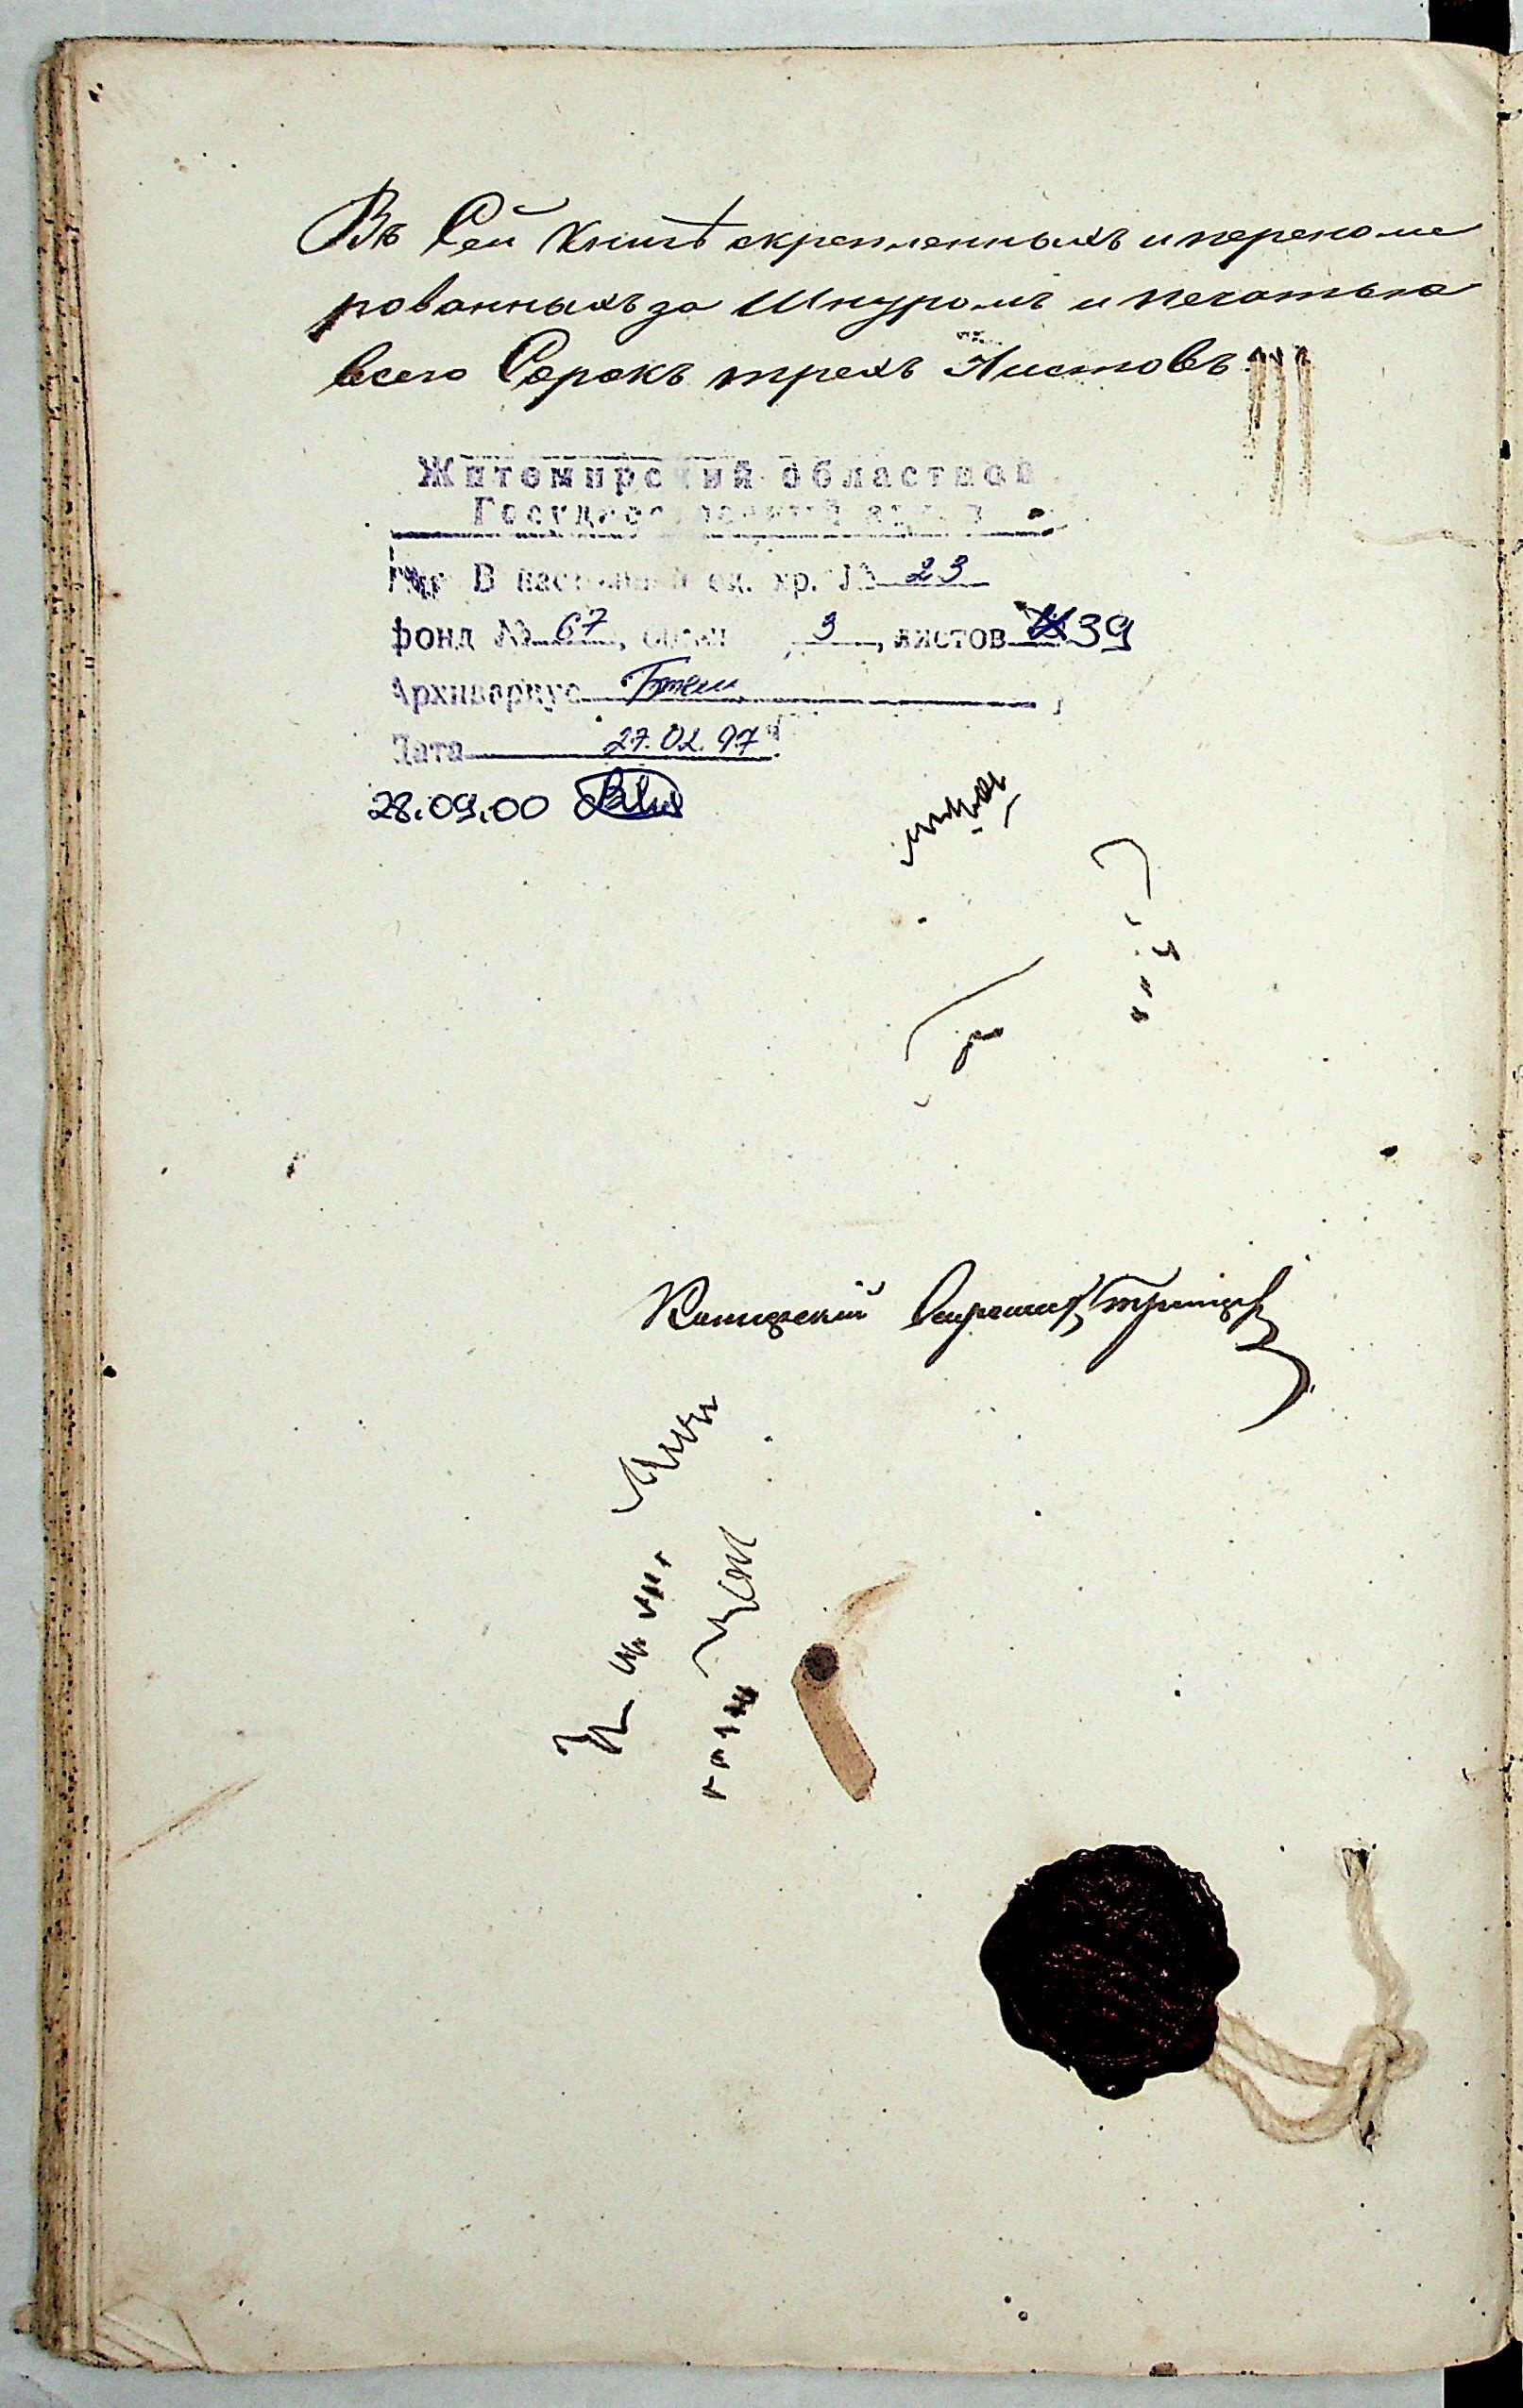 Въ Сей Книгѣ скрепленныхъ и перенуме
рованныхъ за Шнуромъ и печатью
всего Сорокъ трехъ Листовъ
Житомирский областной
Государственный архив
В настоящей ед. хр. № 23
фонд № 67, описи 3, листов 39
Архивариус
Дата 27.02.97
28.09.00
Секретарь